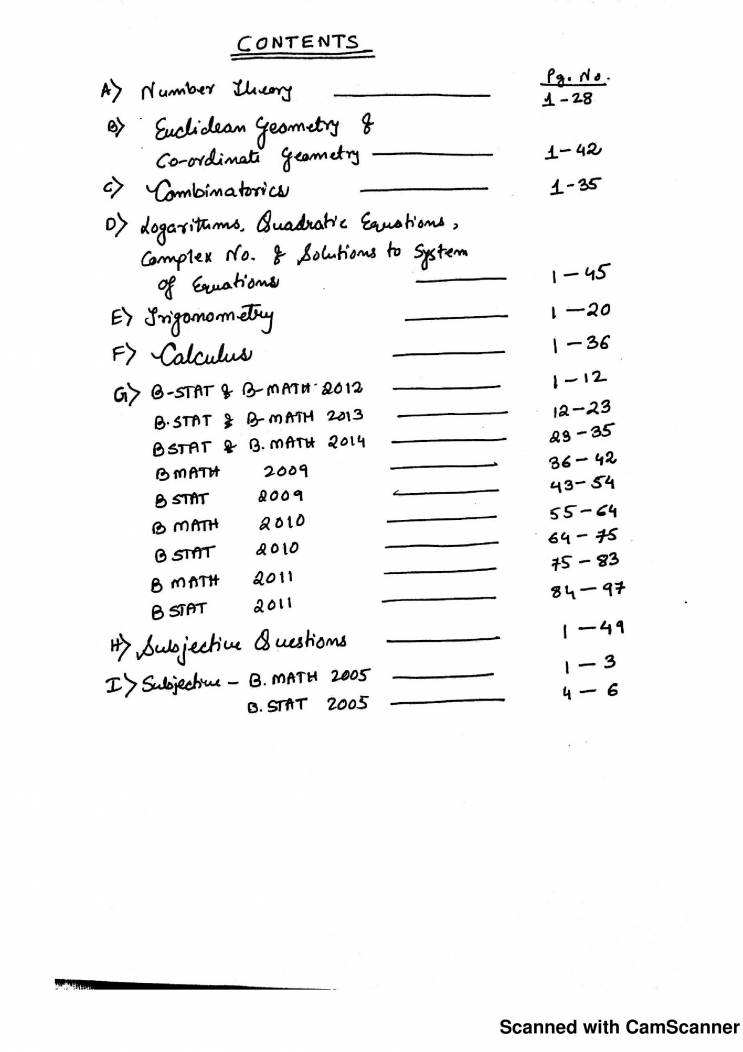 CONTENTS
Pg. No.
A) Number Theory 1-28
B) Euclidean Geometry &
Co-ordinate Geometry 1-42
C) Combinatorics 1-35
D) Logarithms, Quadratic Equations,
Complex No. & Solutions to System
of Equations 1-45
E) Trigonometry 1-20
F) Calculus 1-36
G) B-STAT & B-MATH 2012 1-12
B.STAT & B-MATH 2013 12-23
B STAT & B.MATH 2014 23-35
B MATH 2009 36-42
B STAT 2009 43-54
B MATH 2010 55-64
B STAT 2010 64-75
B MATH 2011 75-83
B STAT 2011 84-97
H) Subjective Questions 1-49
I) Subjective - B.MATH 2005 1-3
B.STAT 2005 4-6
Scanned with CamScanner